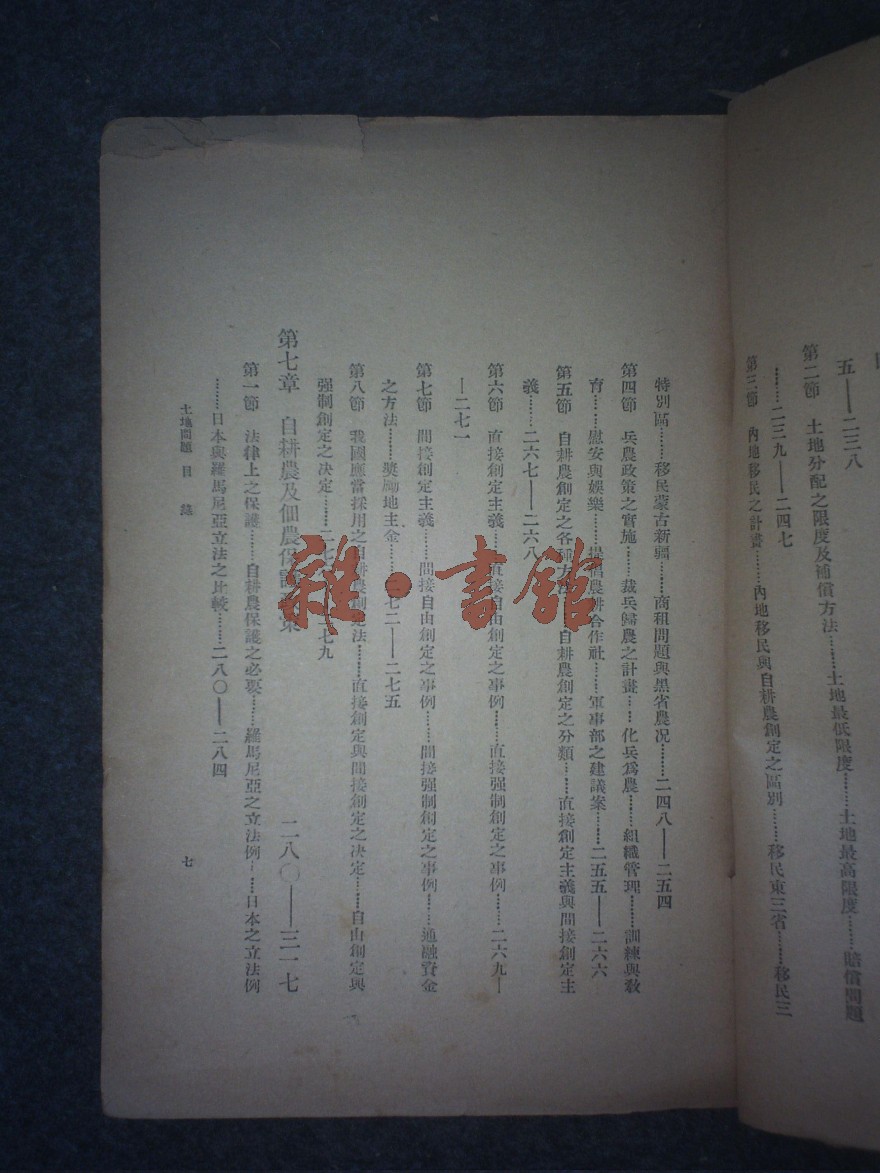 五——二三八
第二節　土地分配之限度及補償方法……土地最低限度……土地最高限度……賠償問題
……二三九——二四七
第三節　內地移民之計畫……內地移民與自耕農創定之區別……移民東三省……移民三
特別區……移民蒙古新疆……商租問題與黑省農况……二四八——二五四
第四節　兵農政策之實施……裁兵歸農之計畫……化兵爲農……組織管理……訓練與敎
育……慰安與娛樂……提倡農耕合作社……軍事部之建議案……二五五——二六六
第五節　自耕農創定之各種方法……自耕農創定之分類……直接創定主義與間接創定主
義……二六七——二六八
第六節　直接創定主義……直接自由創定之事例……直接强制創定之事例……二六九—
—二七一
第七節　間接創定主義……間接自由創定之事例……間接强制創定之事例……通融資金
之方法……獎勵地主金……七二——二七五
第八節　我國應當採用之自耕農創定法……直接創定與間接創定之决定……自由創定與
强制創定之决定……二七　七九
第七章　自耕農及佃農保護　策　二八〇——三一七
第一節　法律上之保護……自耕農保護之必要……羅馬尼亞之立法例……日本之立法例
……日本與羅馬尼亞立法之比較……二八〇——二八四
土地問題　目　錄
七
雜·書館